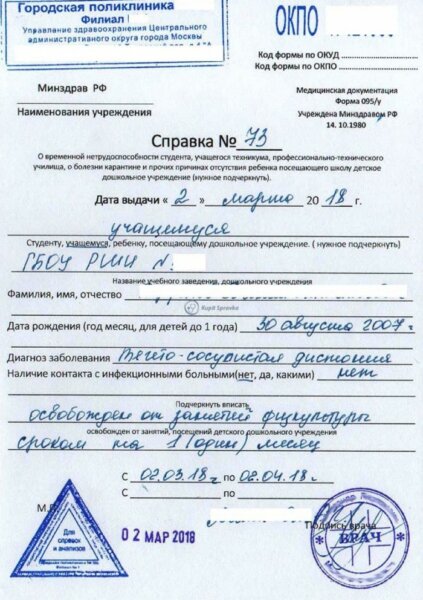 Городская поликлиника
Филиал
Управление здравоохранения Центрального
административного округа города Москвы
ОКПО
Код формы по ОКУД
Код формы по ОКПО
Минздрав РФ
Наименования учреждения
Медицинская документация
Форма 095/у
Учреждена Минздравом РФ
14. 10.1980
Справка № 73
О временной нетрудоспособности студента, учащегося техникума, профессионально-технического
училища, о болезни карантине и прочих причинах отсутствия ребенка посещающего школу детское
дошкольное учреждение (нужное подчеркнуть).
Дата выдачи « 2 » марта 20 18 г.
учащемуся
Студенту, учащемуся, ребенку, посещающему дошкольное учреждение. ( нужное подчеркнуть)
ГБОУ РМИ №
Название учебного заведения, дошкольного учреждения
Фамилия, имя, отчество
Kupit Spravka
Дата рождения (год месяц, для детей до 1 года) 30 августа 2007 г
Диагноз заболевания Вегето-сосудистая дистония
Наличие контакта с инфекционными больными(нет, да, какими) нет
Подчеркнуть вписать
освобожден от занятий физкультуры
освобожден от занятий, посещений детского дошкольного учреждения
сроком на 1 (один) месяц
С 02.03.18г по 02.04.18г.
С по
М.П.
Для
справок
и анализов
02 МАР 2018
Подпись врача
ВРАЧ